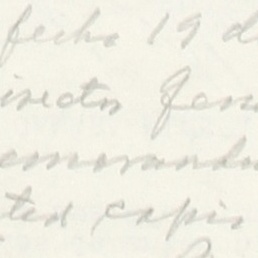 fecha 19 d
irector Gen
emorandu
ted copia